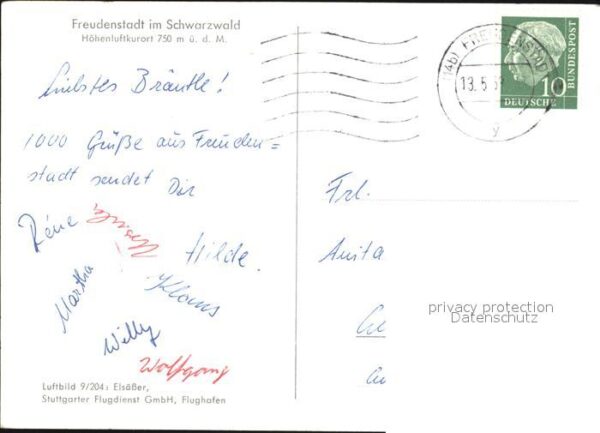 Freudenstadt im Schwarzwald
Höhenluftkurort 750 m ü. d. M.
Liebstes Bräutle!
1000 Grüße aus Freuden=
stadt sendet Dir
Réne
Ursula
Hilde.
Martha
Klaus
Willy
Wolfgang
Luftbild 9/204: Elsäßer,
Stuttgarter Flugdienst GmbH, Flughafen
(14b) FREUDENSTADT
13.5.5
y
10
DEUTSCHE
BUNDESPOST
Frl.
Anita
privacy protection
Datenschutz